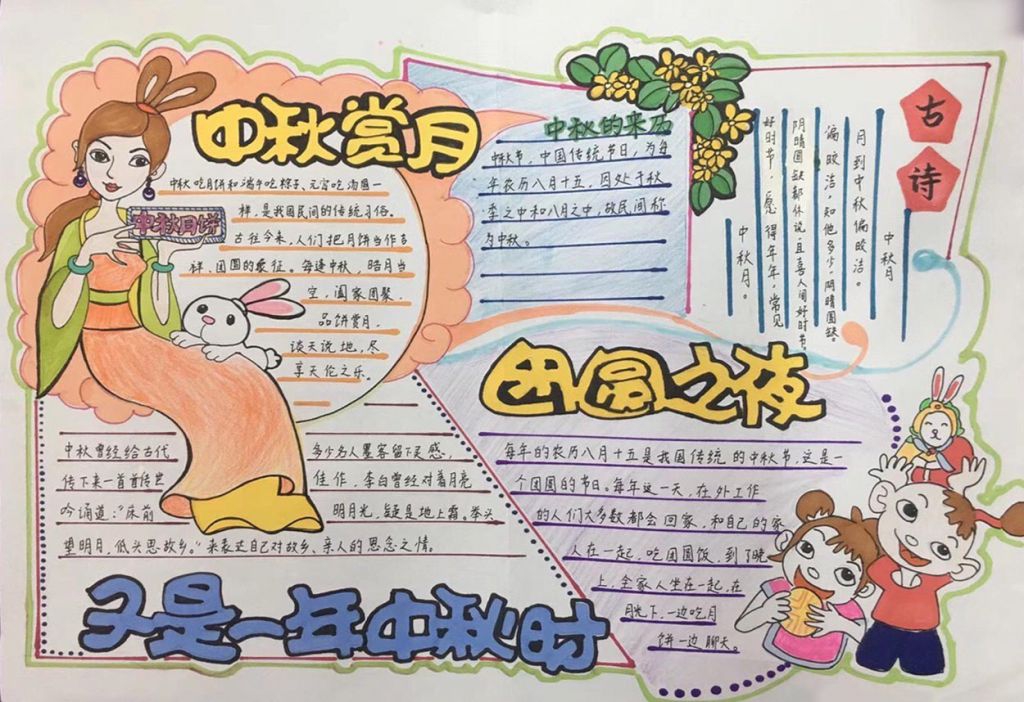 中秋赏月
中秋吃月饼和端午吃粽子、元宵吃汤圆一
样，是我国民间的传统习俗。
古往今来，人们把月饼当作吉
祥、团圆的象征。每逢中秋，皓月当
空，阖家团聚，
品饼赏月，
谈天说地，尽
享天伦之乐。
中秋月饼
中秋的来历
中秋节，中国传统节日，为每
年农历八月十五，因处于秋
季之中和八月之中，故民间称
为中秋。
古诗
中秋月
月到中秋偏皎洁。
偏皎洁，知他多少，阴晴圆缺。
阴晴圆缺都休说，且喜人间好时节。
好时节，愿得年年，常见
中秋月。
团圆之夜
每年的农历八月十五是我国传统的中秋节，这是一
个团圆的节日。每年这一天，在外工作
的人们大多数都会回家，和自己的家
人在一起，吃团圆饭，到了晚
上，全家人坐在一起，在
月光下，一边吃月
饼一边聊天。
中秋曾经给古代
传下来一首首传世
吟诵道：“床前
望明月，低头思故乡。”来表达自己对故乡、亲人的思念之情。
多少名人墨客留下灵感，
佳作，李白曾经对着月亮
明月光，疑是地上霜。举头
又是一年中秋时